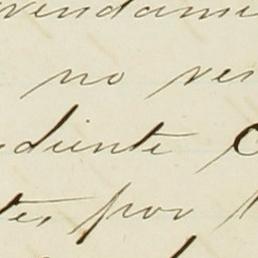 vendami
no ves
diente C
tes por